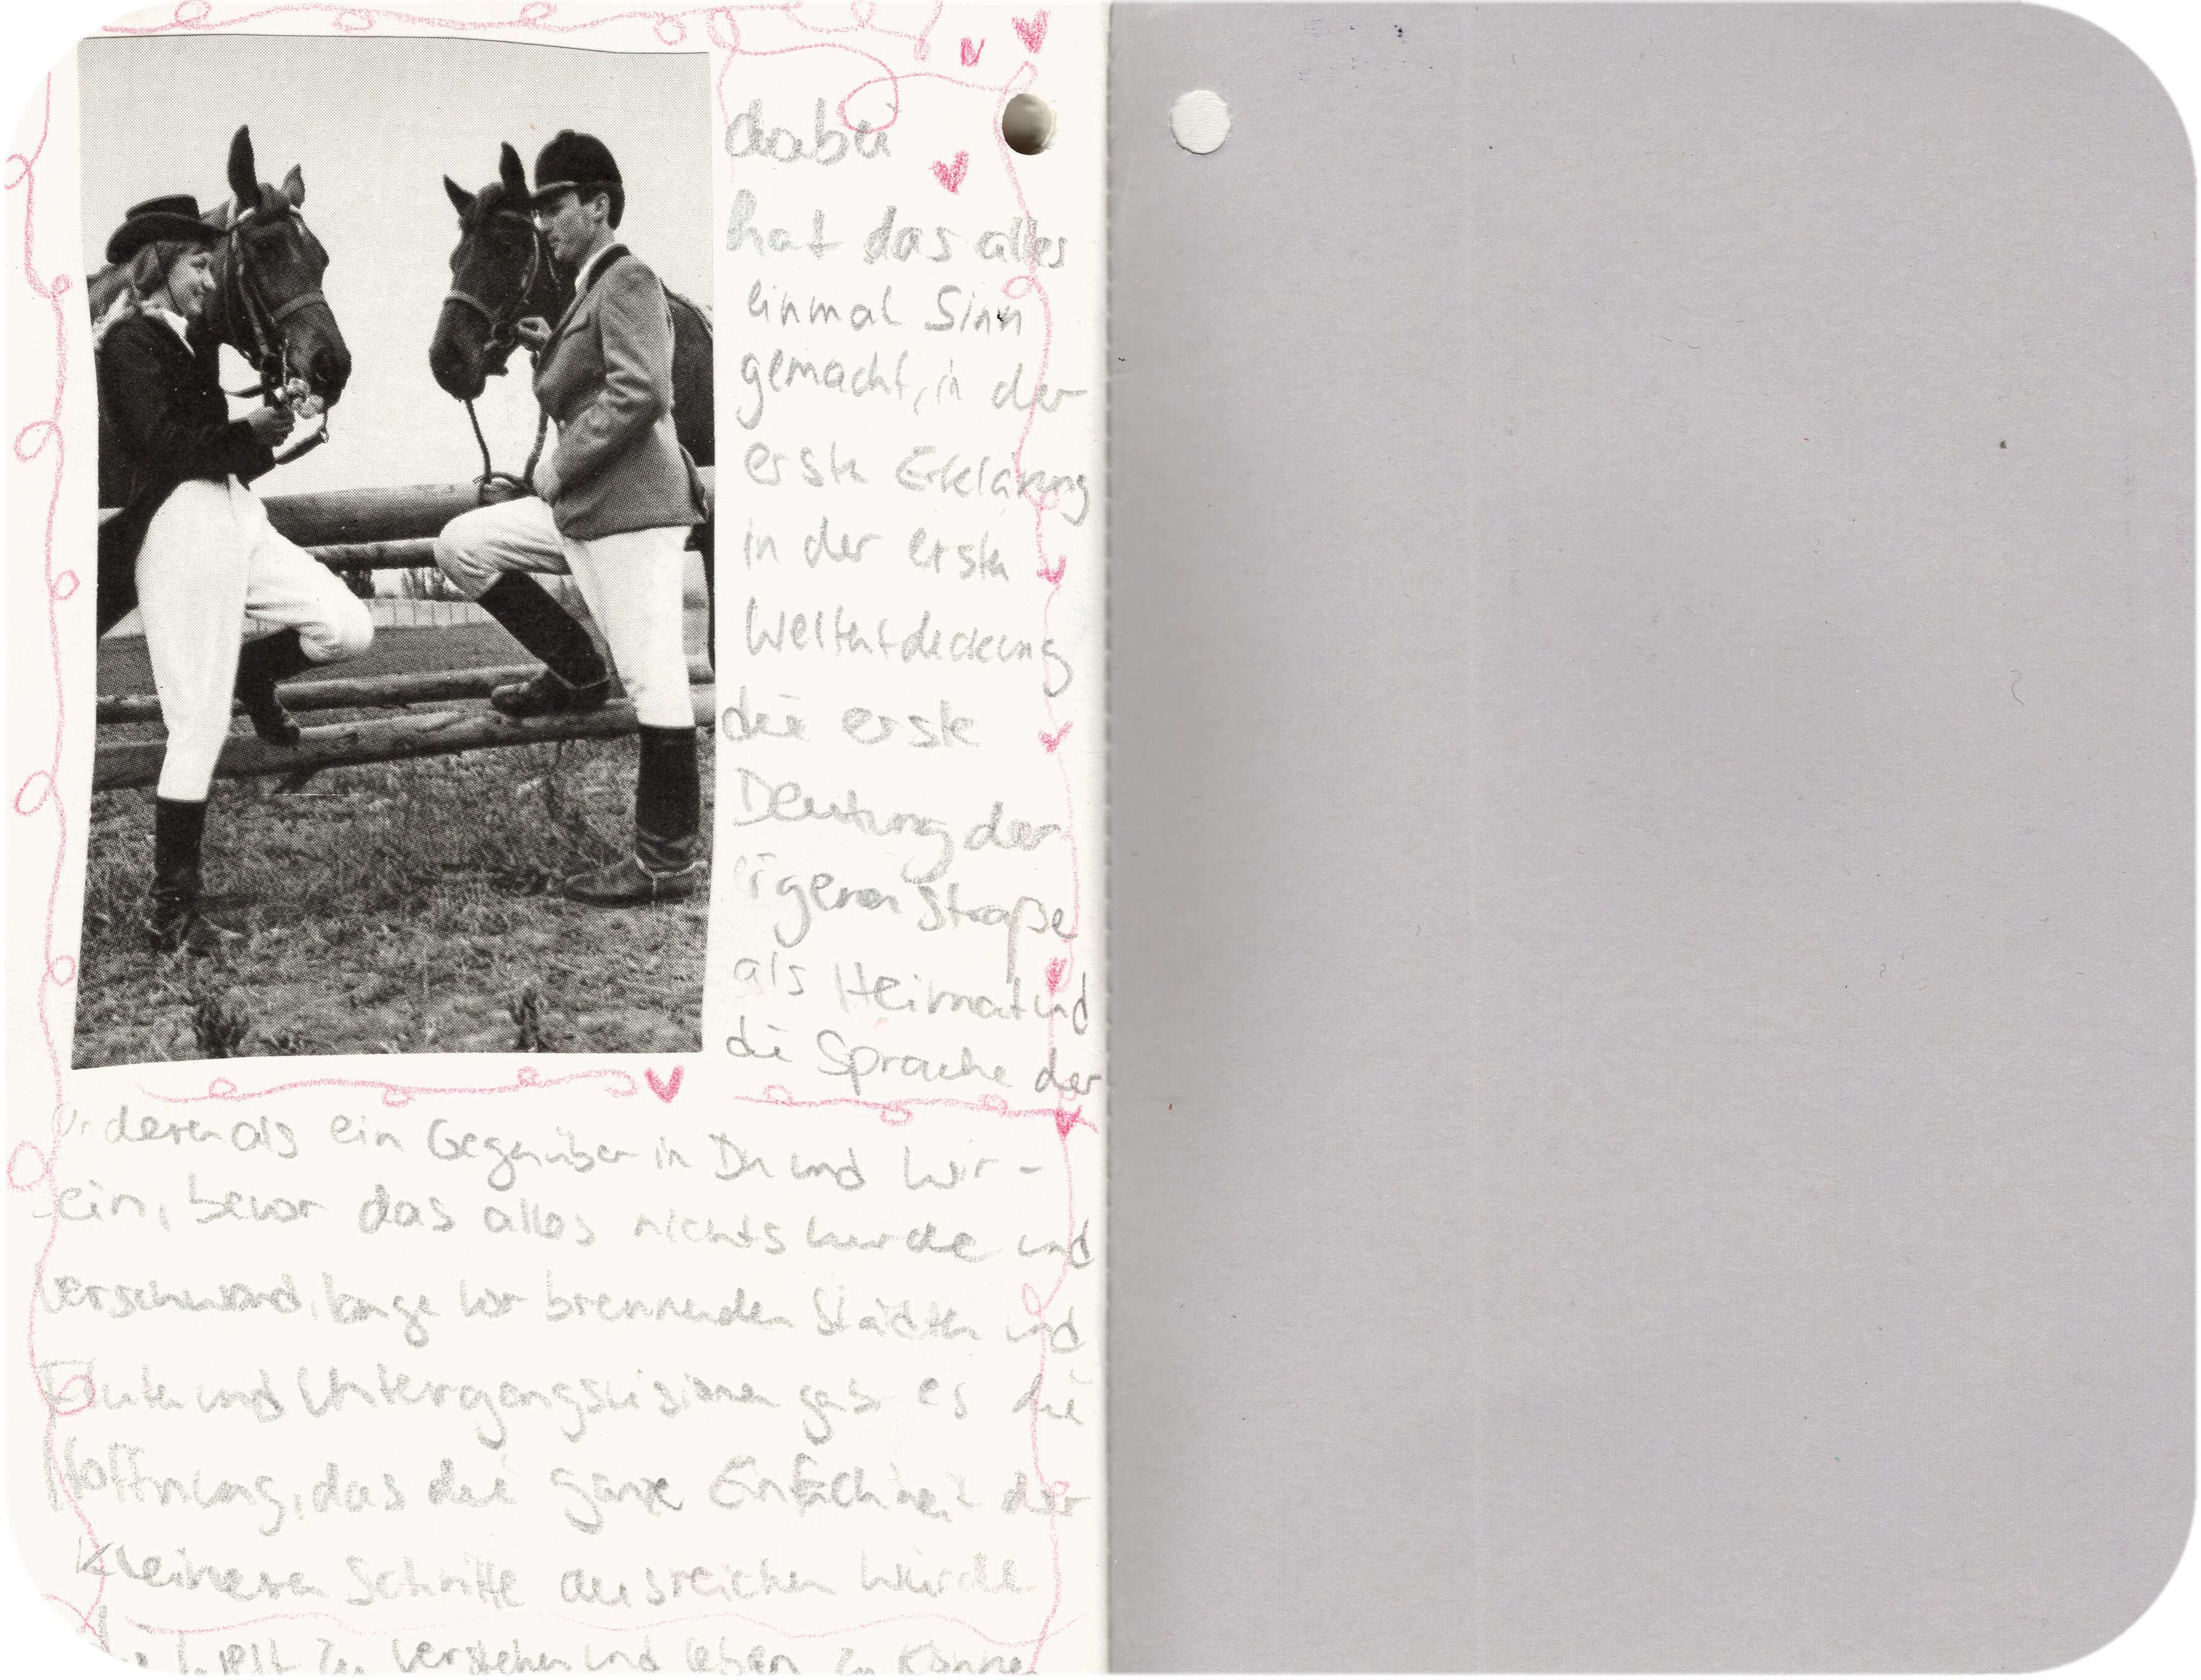 dabei
hat das alles
einmal Sinn
gemacht, in der
erste Erklärung
in der erste
Weltentdeckung
die erste
Deutung der
eigenen Straße
als Heimat und
die Sprache der
anderen als ein Gegenüber in Du und Wir-
sein, bevor das alles nichts wurde und
verschwand, lange vor brennenden Städten und
und Untergangsvisionen gab es die
Hoffnung, das die ganze Einfachheit der
kleineren Schritte ausreichen würde
die Welt zu verstehen und leben zu können